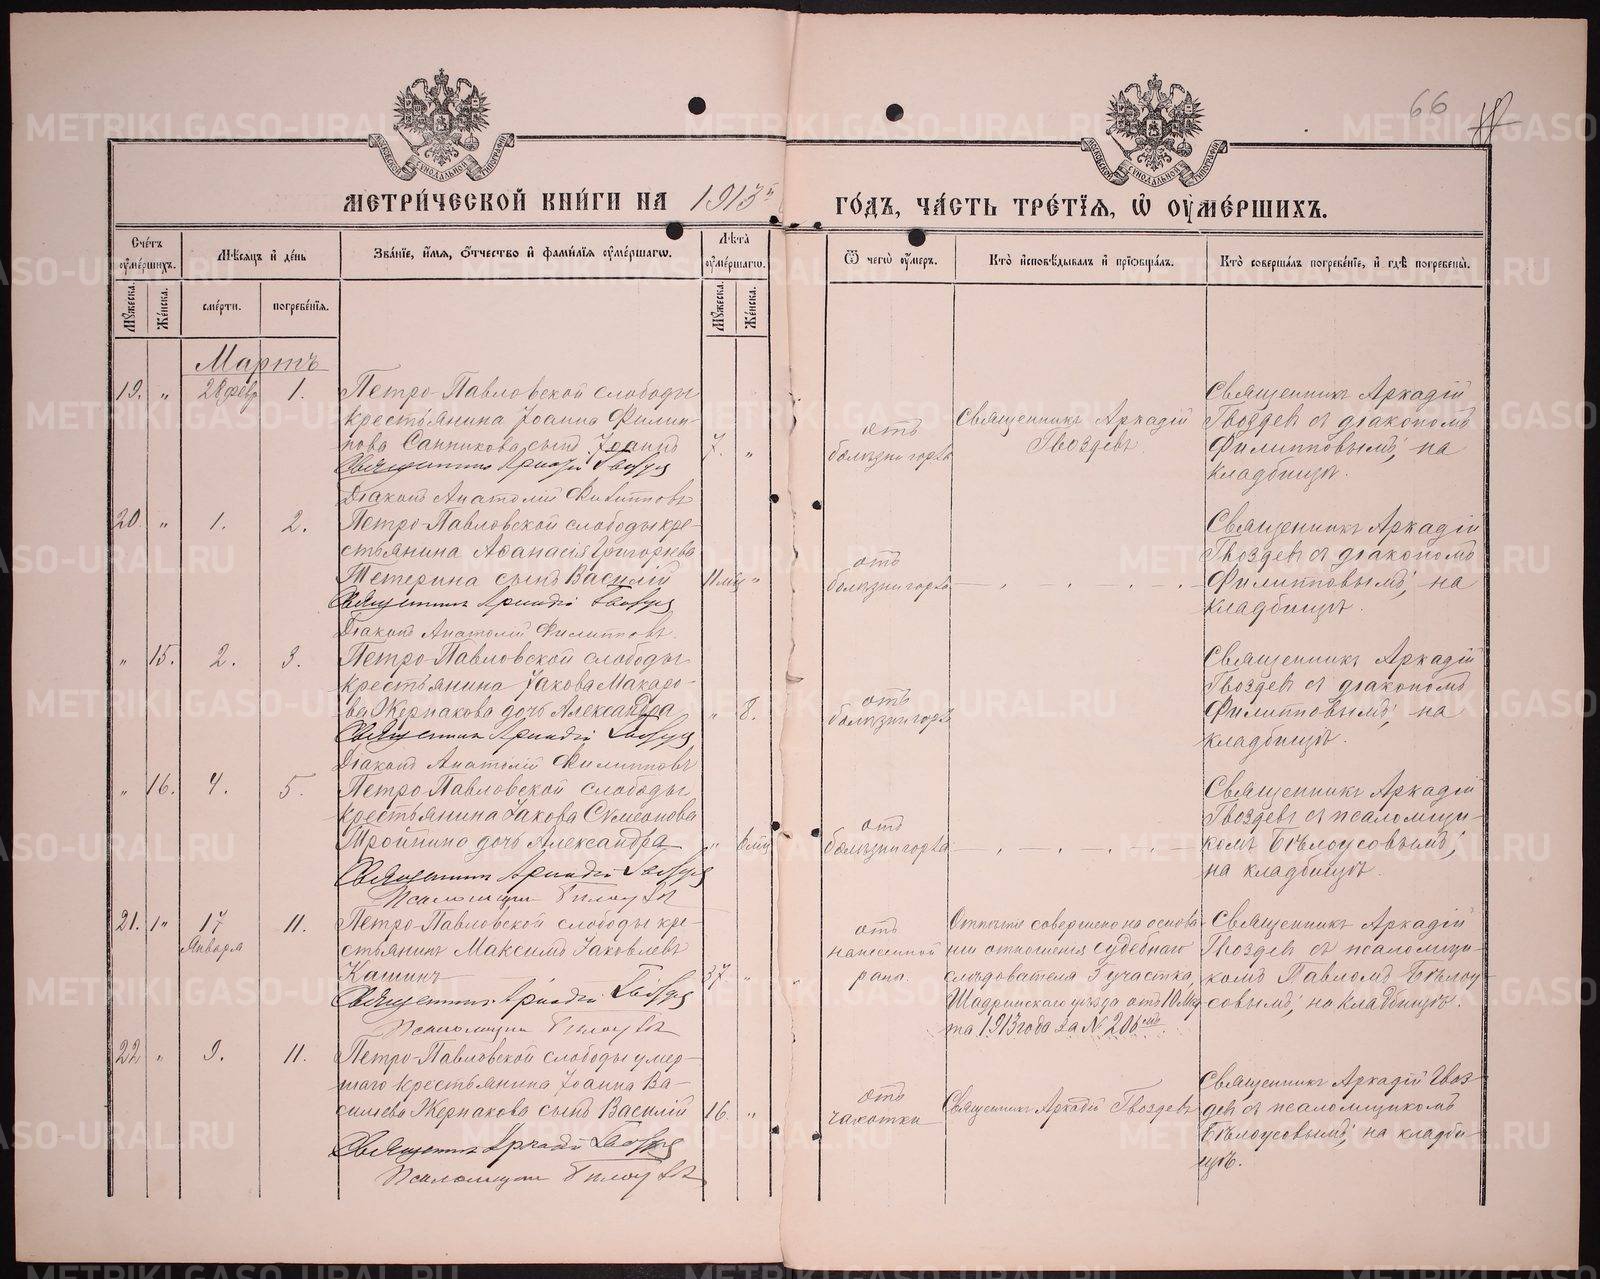 66
МЕТРИ́ЧЕСКОЙ КНИ́ГИ НА 1913й ГО́ДЪ, ЧА́СТЬ ТРЕ́ТЇѦ, Ѽ ОУМЕ́РШИХЪ.
Счетъ оумершихъ.
Мужеска.
Женска.
Мѣсяцъ и день
смерти.
погребенїя.
Званїе, имя, отчество и фамилїя оумершагѡ.
Лѣта оумершагѡ.
Мужеска.
Женска.
Ѿ чегѡ оумеръ.
Кто исповѣдывалъ и прїобщалъ.
Кто совершалъ погребенїе, и гдѣ погребены.
Мартъ
19. " 28 февр 1.
Петро-Павловской слободы
крестьянина Іоанна Филип-
пова Санникова сынъ Іоаннъ
Священникъ Аркадій Гвоздев
Діаконъ Анатолій Филипповъ
7. "
отъ
болѣзни горла
Священникъ Аркадій
Гвоздевъ
Священникъ Аркадій
Гвоздевъ съ діакономъ
Филипповымъ; на
кладбищѣ.
20. " 1. 2.
Петро-Павловской слободы кре-
стьянина Аѳанасія Григорьева
Тетерина сынъ Василій
Священникъ Аркадій Гвоздев
Діаконъ Анатолій Филипповъ.
11 мц "
отъ
болѣзни горла
Священникъ Аркадій
Гвоздевъ съ діакономъ
Филипповымъ; на
кладбищѣ.
" 15. 2. 3.
Петро-Павловской слободы
крестьянина Іакова Макаро-
ва Жернакова дочь Александра
Священникъ Аркадій Гвоздев
Діаконъ Анатолій Филипповъ
" 8.
отъ
болѣзни горла
Священникъ Аркадій
Гвоздевъ съ діакономъ
Филипповымъ; на
кладбищѣ.
" 16. 4. 5.
Петро-Павловской слободы
крестьянина Іакова Симеонова
дочь Александра
Священникъ Аркадій Гвоздев
Псаломщикъ Бѣлоусов
" 6 мц
отъ
болѣзни горла
Священникъ Аркадій
Гвоздевъ съ псаломщи-
комъ Бѣлоусовымъ;
на кладбищѣ.
21. " 17 Января 11.
Петро-Павловской слободы кре-
стьянинъ Максимъ Іаковлевъ
Кашинъ
Священникъ Аркадій Гвоздев
Псаломщикъ Бѣлоусов
37 "
отъ
нанесенной
раны.
Отпѣтіе совершено на основа-
нии отношенія судебнаго
слѣдователя 5 участка,
Шадринскаго уѣзда отъ 10 Мар-
та 1913 года за № 206мъ.
Священникъ Аркадій
Гвоздевъ съ псаломщи-
комъ Павломъ Бѣлоу-
совымъ; на кладбищѣ.
22 " 9. 11.
Петро-Павловской слободы умер-
шаго крестьянина Іоанна Ва-
сильева Жернакова сынъ Василій
Священникъ Аркадій Гвоздев
Псаломщикъ Бѣлоусов
16. "
отъ
чахотки
Священникъ Аркадій Гвоздевъ
Священникъ Аркадій Гвоз-
девъ съ псаломщикомъ
Бѣлоусовымъ; на кладби-
щѣ.
METRIKI.GASO-URAL.RU